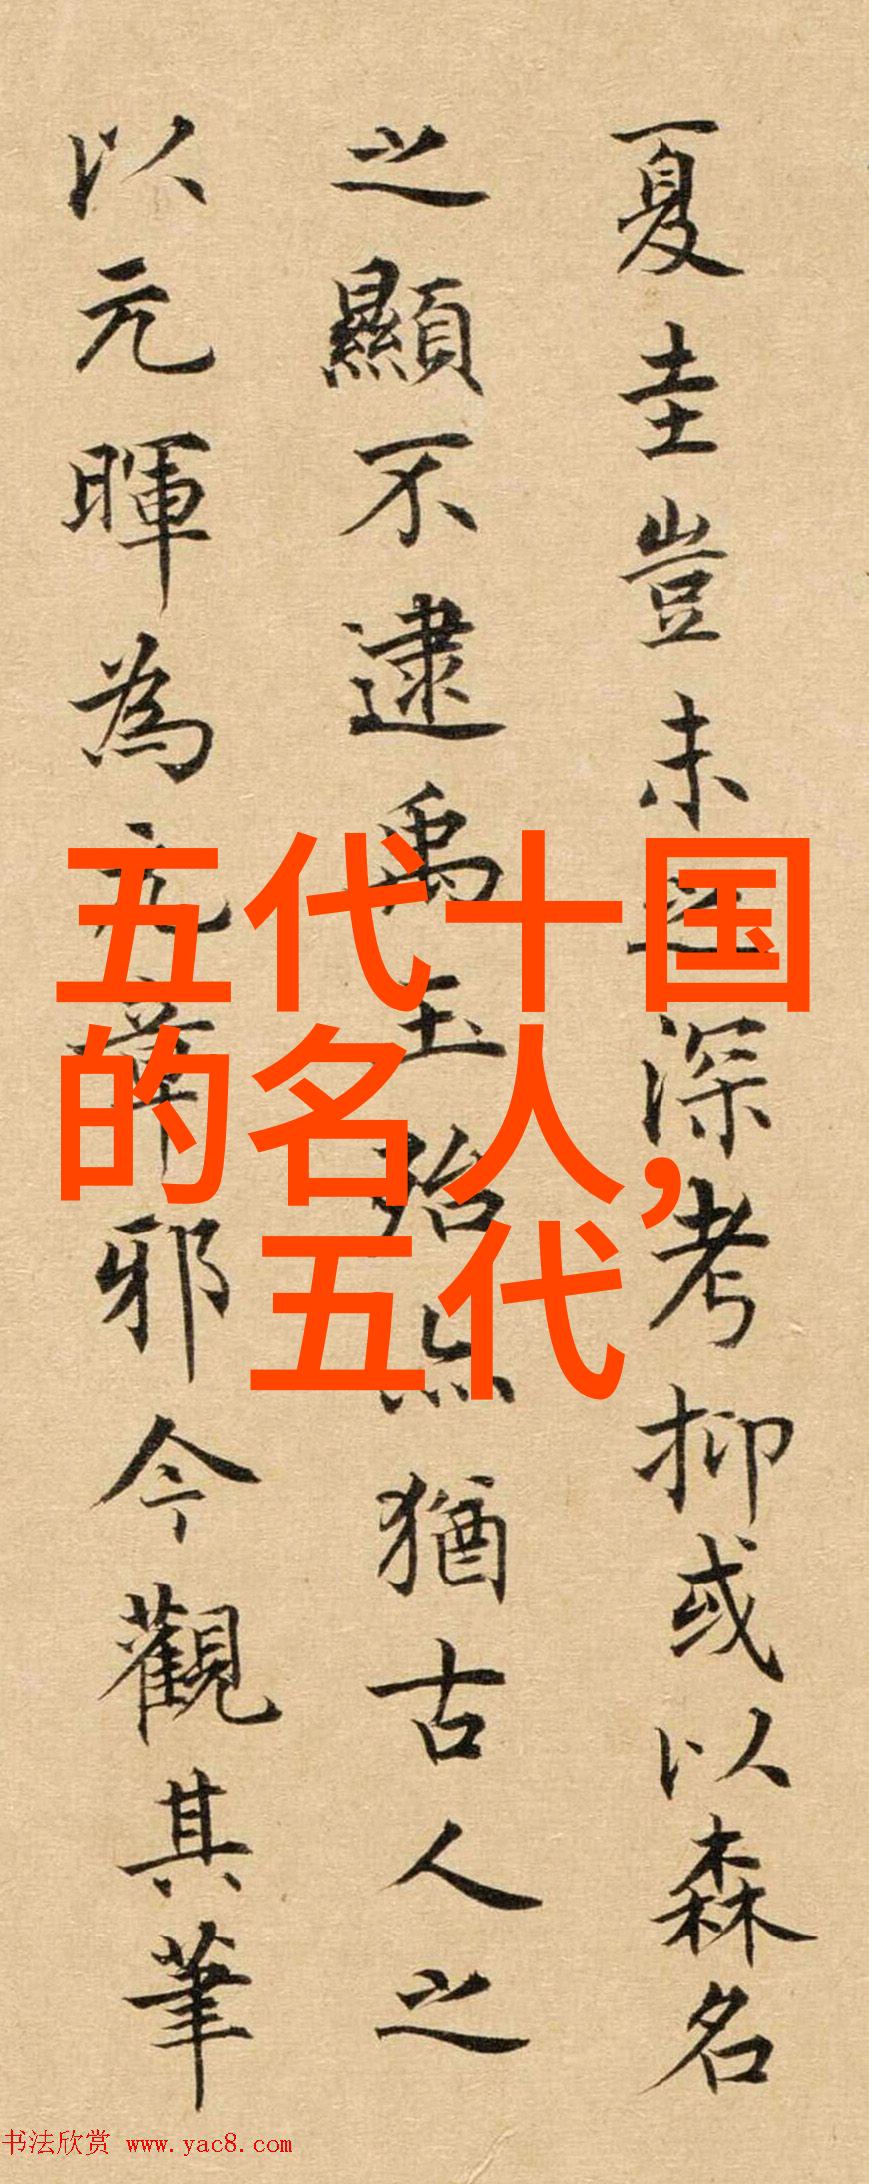 夏圭豈未之深考抑或以森名
之顯不逮禹玉殆亦猶古人之
以元暉為元章邪今觀其筆
五代十国
的名人,
五代
书法欣赏 www.yac8.com